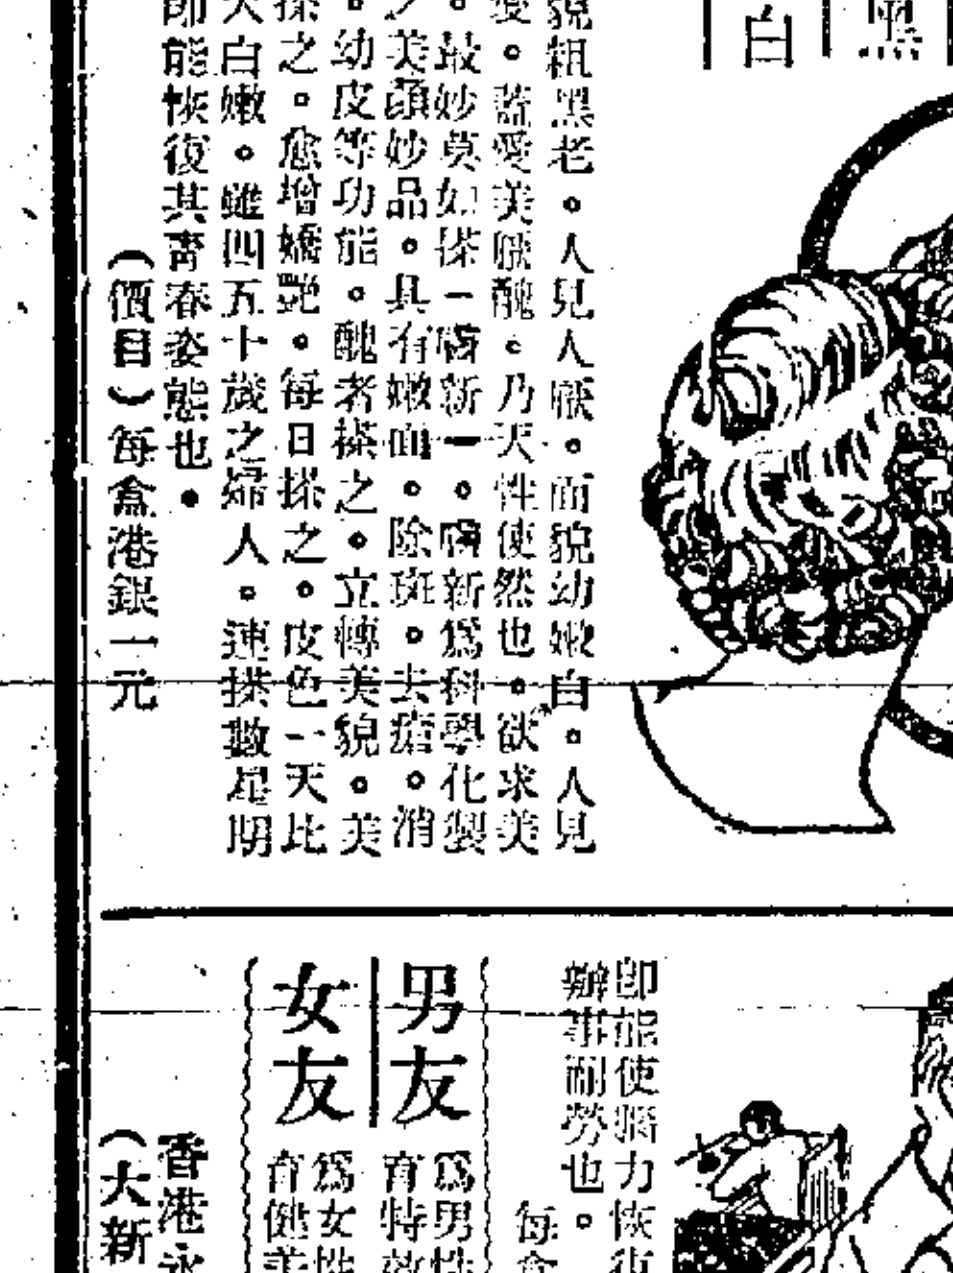 黑
白
貌粗黑老。人見人厭。面貌幼嫩白。人見
愛。蓋愛美厭醜。乃天性使然也。欲求美
。最妙莫如搽一嗡新一。嗡新爲科學化製
之美顏妙品。具有嫩面。除斑。去瘡。消
。幼皮等功能。醜者搽之。立轉美貌。美
搽之。愈增嬌艷。每日搽之。皮色一天比
天白嫩。雖四五十歲之婦人。連搽數星期
即能恢復其靑春姿態也。
(價目)每盒港銀一元
即能使腦力恢復
辦事耐勞也。
每盒
男友
爲男性
有特效
女友
爲女性
有健美
香港永
(大新